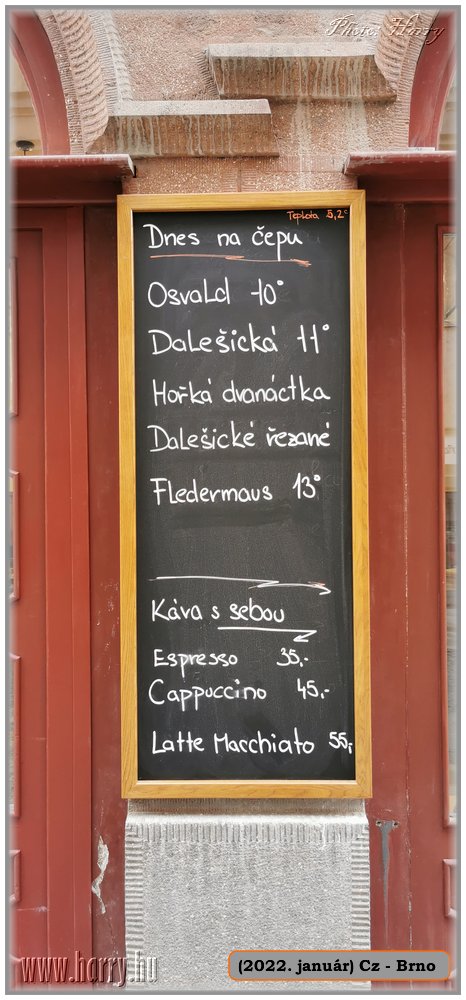 Photo: Harry
Teplota 5,2°C
Dnes na čepu
Osvald 10°
Dalešická 11°
Hořká dvanáctka
Dalešické řezané
Fledermaus 13°
Káva s sebou
Espresso 35,-
Cappuccino 45,-
Latte Macchiato 55,-
www.harry.hu
(2022. január) Cz - Brno